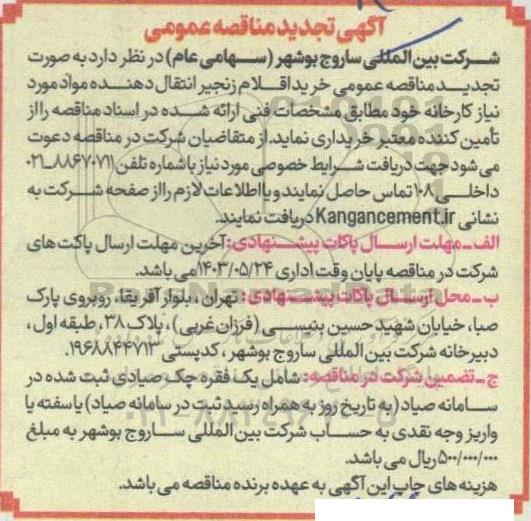 آگهی تجدید مناقصه عمومی
شرکت بین المللی ساروج بوشهر (سهامی عام) در نظر دارد به صورت
تجدید مناقصه عمومی خرید اقلام زنجیر انتقال دهنده مواد مورد
نیاز کارخانه خود مطابق مشخصات فنی ارائه شده در اسناد مناقصه را از
تأمین کننده معتبر خریداری نماید. از متقاضیان شرکت در مناقصه دعوت
می شود جهت دریافت شرایط خصوصی مورد نیاز با شماره تلفن ۸۸۶۷۰۷۱۱-۰۲۱
داخلی ۱۰۸ تماس حاصل نمایند و یا اطلاعات لازم را از صفحه شرکت به
نشانی Kangancement.ir دریافت نمایند.
الف- مهلت ارسال پاکات پیشنهادی: آخرین مهلت ارسال پاکت های
شرکت در مناقصه پایان وقت اداری ۱۴۰۳/۰۵/۲۴ می باشد.
ب- محل ارسال پاکات پیشنهادی: تهران، بلوار آفریقا، روبروی پارک
صبا، خیابان شهید حسین بنیسی (فرزان غربی)، پلاک ۳۸، طبقه اول،
دبیرخانه شرکت بین المللی ساروج بوشهر، کدپستی ۱۹۶۸۸۴۴۷۱۳.
ج- تضمین شرکت در مناقصه: شامل یک فقره چک صیادی ثبت شده در
سامانه صیاد (به تاریخ روز به همراه رسید ثبت در سامانه صیاد) یا سفته یا
واریز وجه نقدی به حساب شرکت بین المللی ساروج بوشهر به مبلغ
۵۰۰/۰۰۰/۰۰۰ ریال می باشد.
هزینه های چاپ این آگهی به عهده برنده مناقصه می باشد.